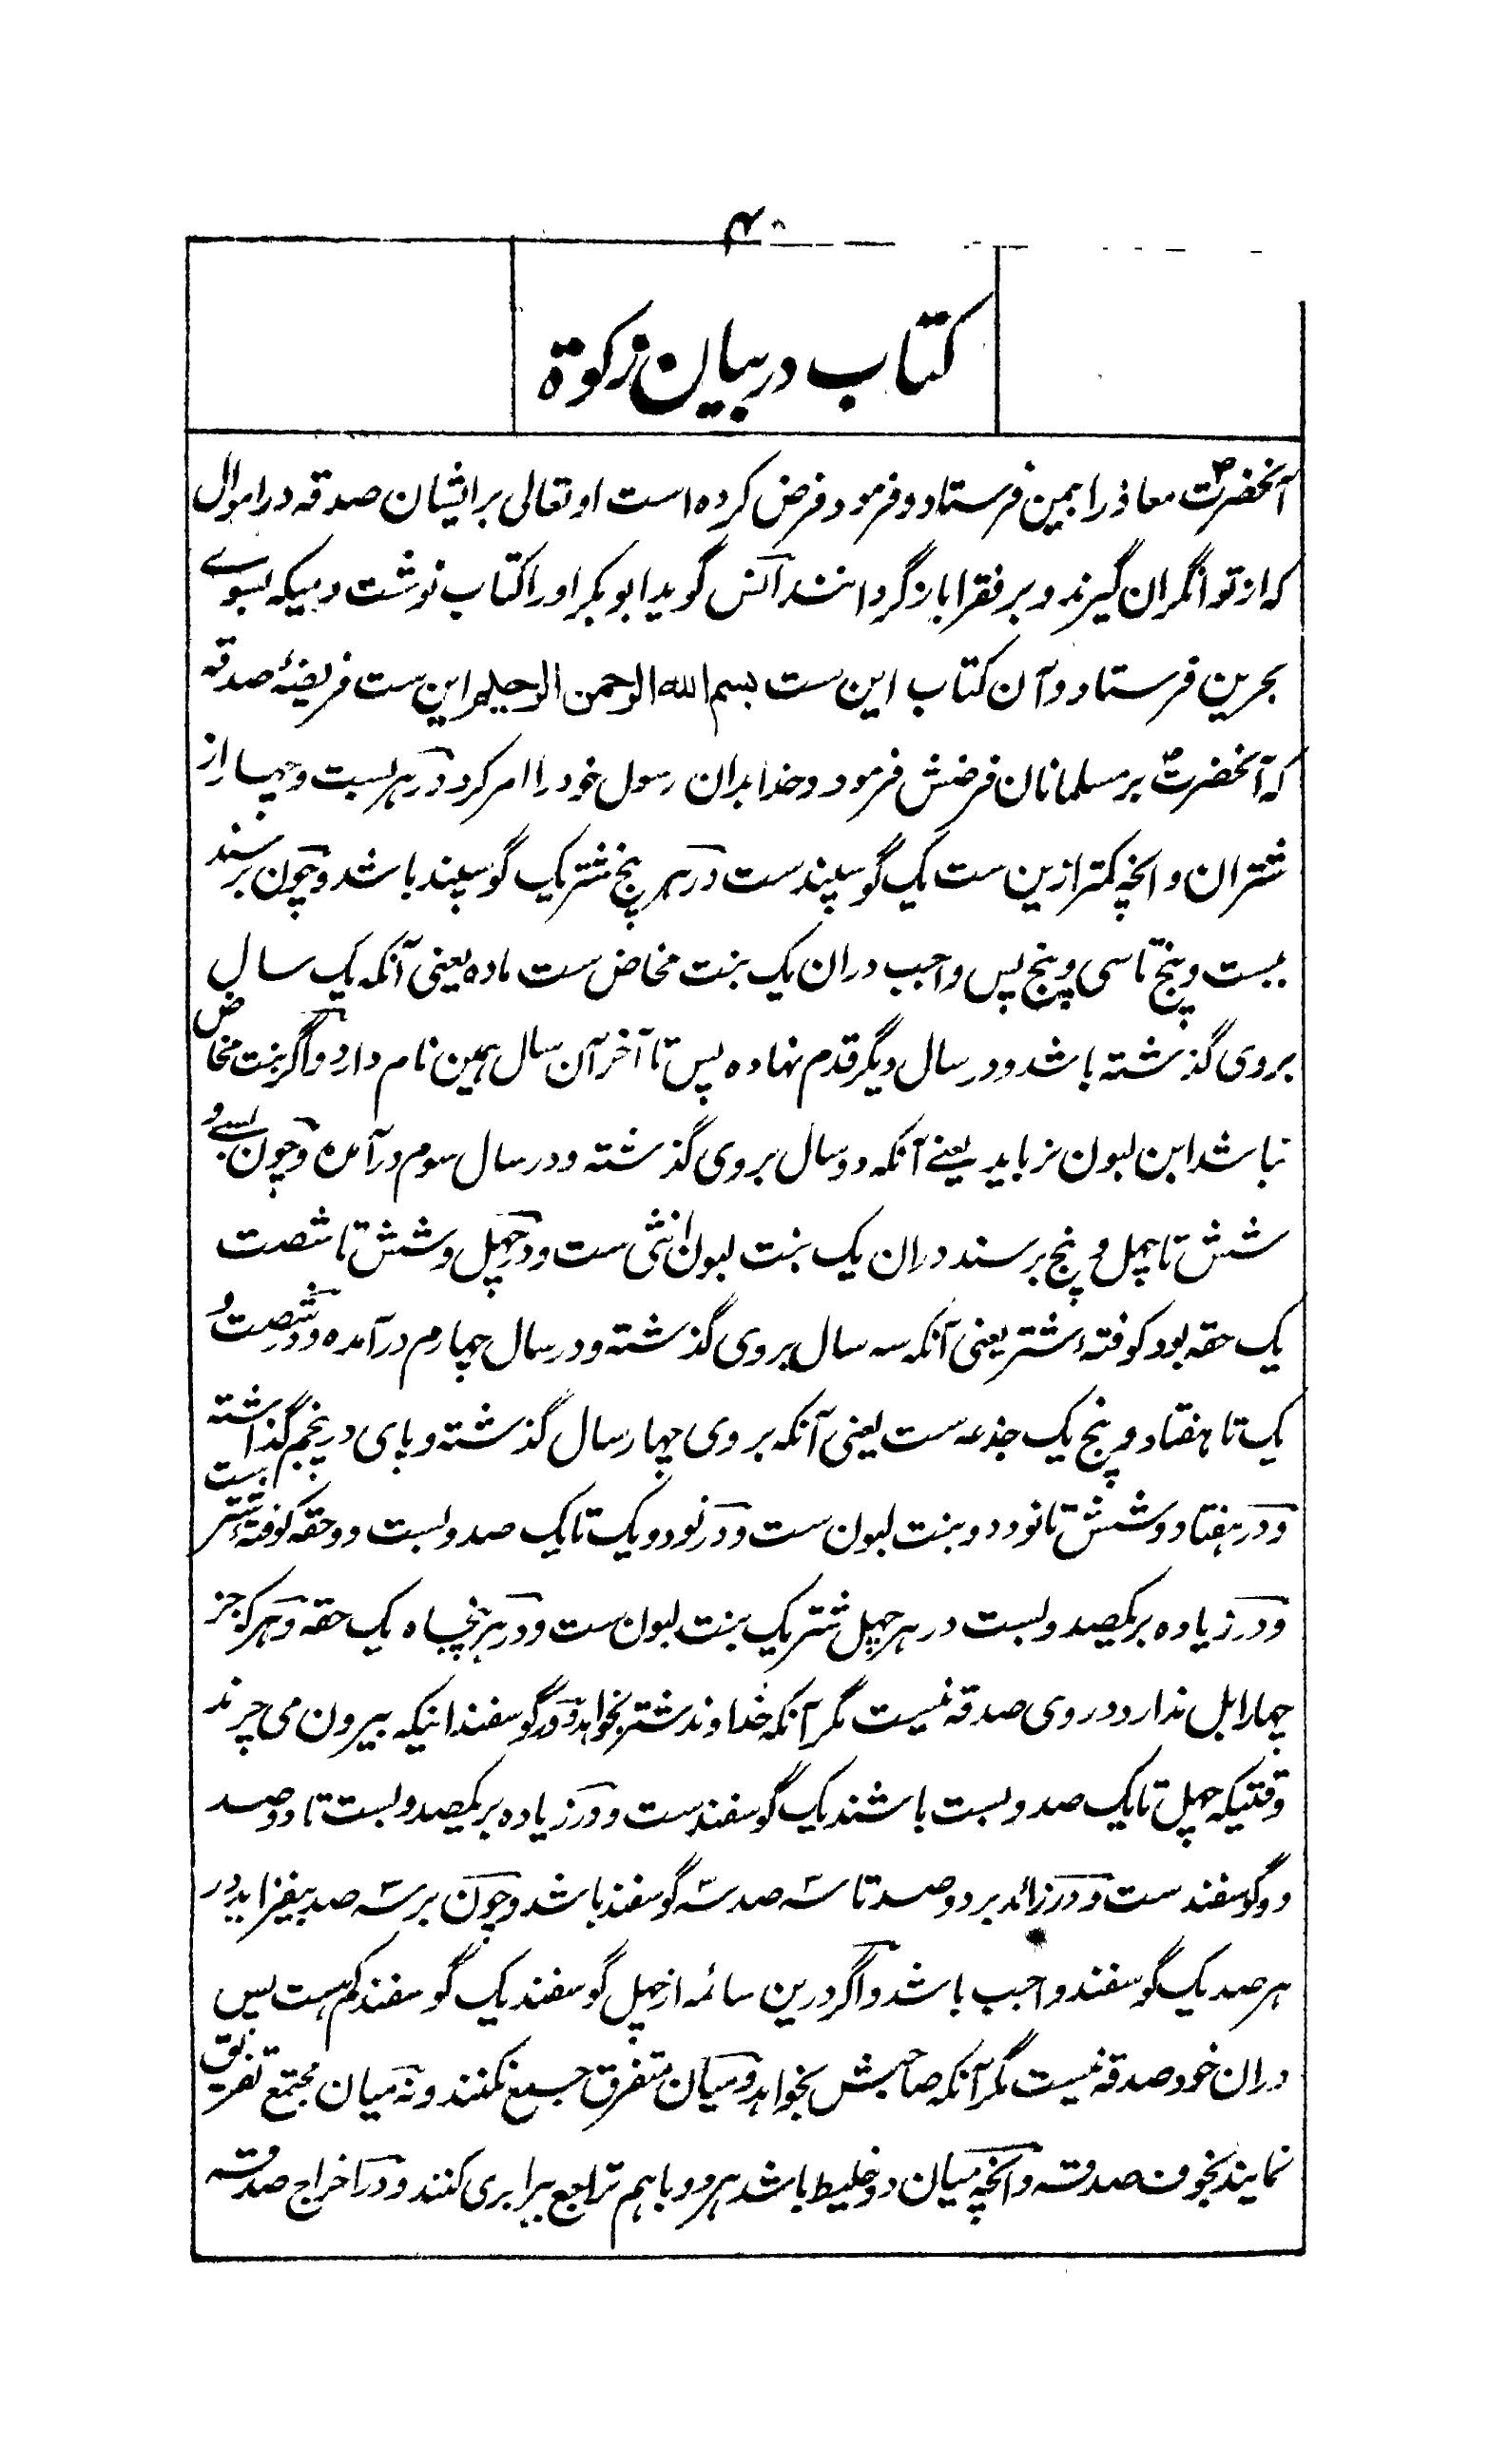 ۴۰
کتاب در بیان زکوة
آنحضرتؐ معاذ را بیمن فرستاد و فرمود فرض کرده است او تعالی بر ایشان صدقه در اموال
که از توانگران گیرند و بر فقرا باز گردانند انس گوید ابوبکر او را کتاب نوشت وقتیکه بسوے
بحرین فرستاد و آن کتاب این ست بسم الله الرحمن الرحیم این ست فریضهٔ صدقه
که آنحضرتؐ بر مسلمانان فرضش فرمود و خدا بدان رسول خود را امر کرد در هر بست و چهار از
شتران و انچه کمتر ازین ست یک گوسپند ست در هر پنج شتر یک گوسپند باشد و چون برسند
بیست و پنج تا سی و پنج پس واجب دران یک بنت مخاض ست ماده یعنی آنکه یک سال
بروی گذشته باشد و در سال دیگر قدم نهاده پس تا آخر آن سال همین نام دارد و اگر بنت مخاض
نباشد ابن لبون نر باید یعنے آنکه دو سال بروی گذشته و در سال سوم درآمده و چون بسے و
شش تا چهل و پنج برسند دران یک بنت لبون انثی ست و در چهل و شش تا شصت
یک حقه بود کوفتهٔ شتر یعنی آنکه سه سال بروی گذشته و در سال چهارم درآمده و در شصت و
یک تا هفتاد و پنج یک جذعه ست یعنی آنکه بروی چهار سال گذشته و پای در پنجم گذاشته
و در هفتاد و شش تا نود دو بنت لبون ست و در نود و یک تا یک صد و بست دو حقه کوفتهٔ شتر ست
و در زیاده بر یکصد و بست در هر چهل شتر یک بنت لبون ست و در هر پنجاه یک حقه و هر که جز
چهار ابل ندارد در وی صدقه نیست مگر آنکه خداوند شتر بخواهد و در گوسفندانیکه بیرون می چرند
وقتیکه چهل تا یک صد و بست باشند یک گوسفند ست و در زیاده بر یکصد و بست تا دو صد
دو گوسفند ست و در زائد بر دو صد تا سه صد سه گوسفند باشد و چون بر سه صد بیفزاید در
هر صد یک گوسفند واجب باشد و اگر درین سائمه از چهل گوسفند یک گوسفند کم ست پس
دران خود صدقه نیست مگر آنکه صاحبش بخواهد و میان متفرق جمع نکنند و نه میان مجتمع تفریق
نمایند بخوف صدقه و انچه میان دو خلیط باشد هر دو باهم تراجع ببرابری کنند و در اخراج صدقه